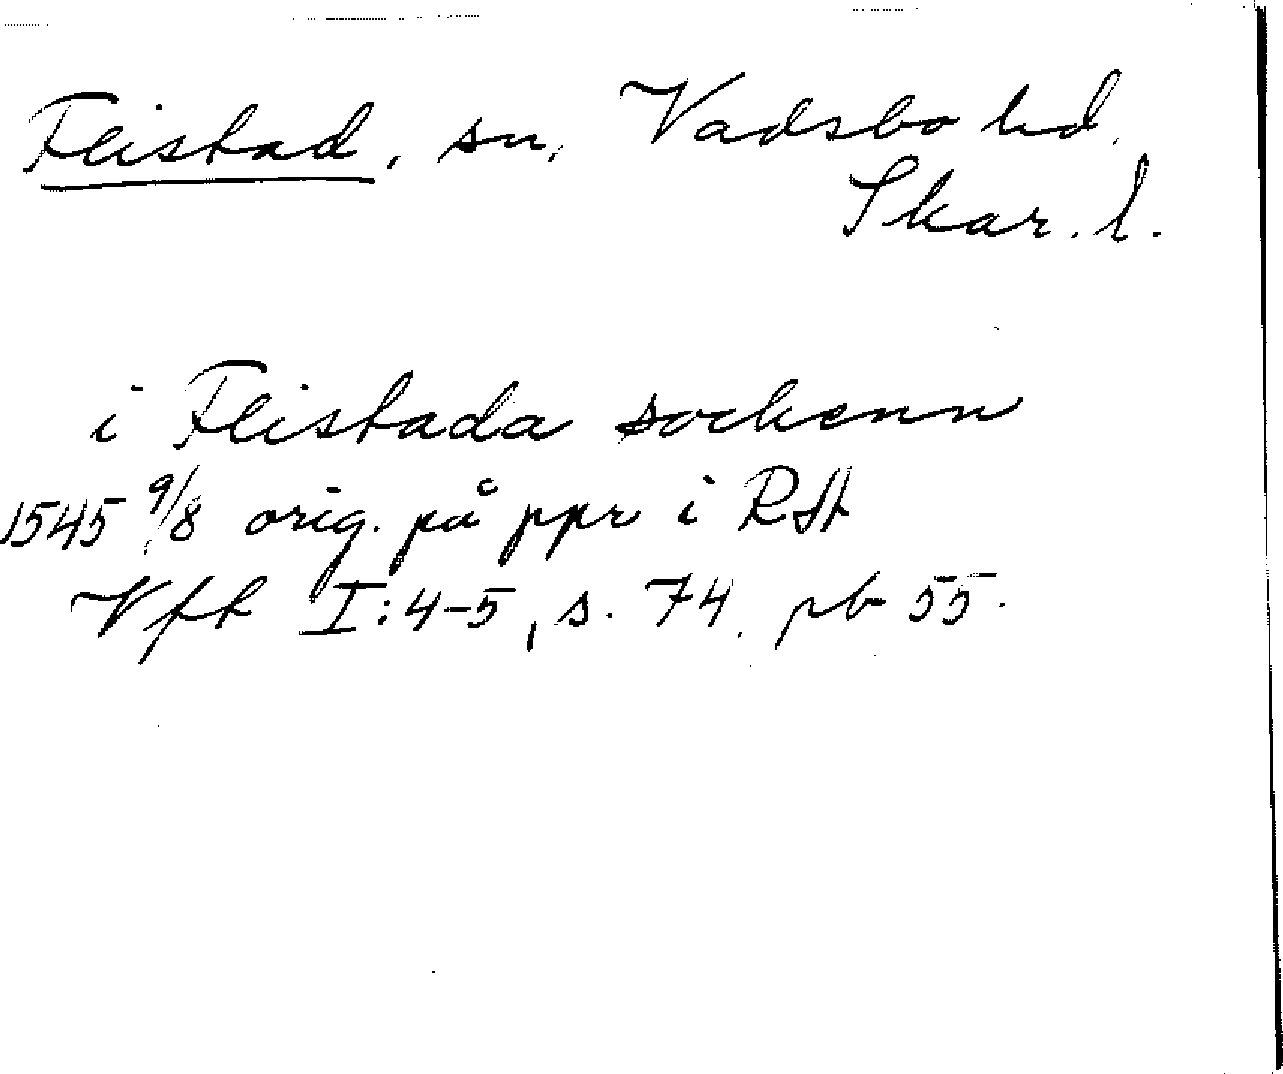 Flistad, sn, Vadsbo hd.
Skar. l.
i Flistada sockenn
1545 9/8 orig. på ppr i RA
Vfh I:4-5, s. 74. pb 55.